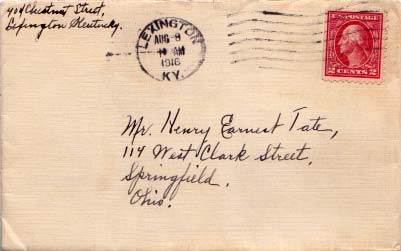 404 Chestnut Street,
Lexington Kentucky.
LEXINGTON
AUG 8
10 AM
1916
KY.
U.S. POSTAGE
2 CENTS 2
Mr. Henry Earnest Tate,
114 West Clark Street,
Springfield,
Ohio.